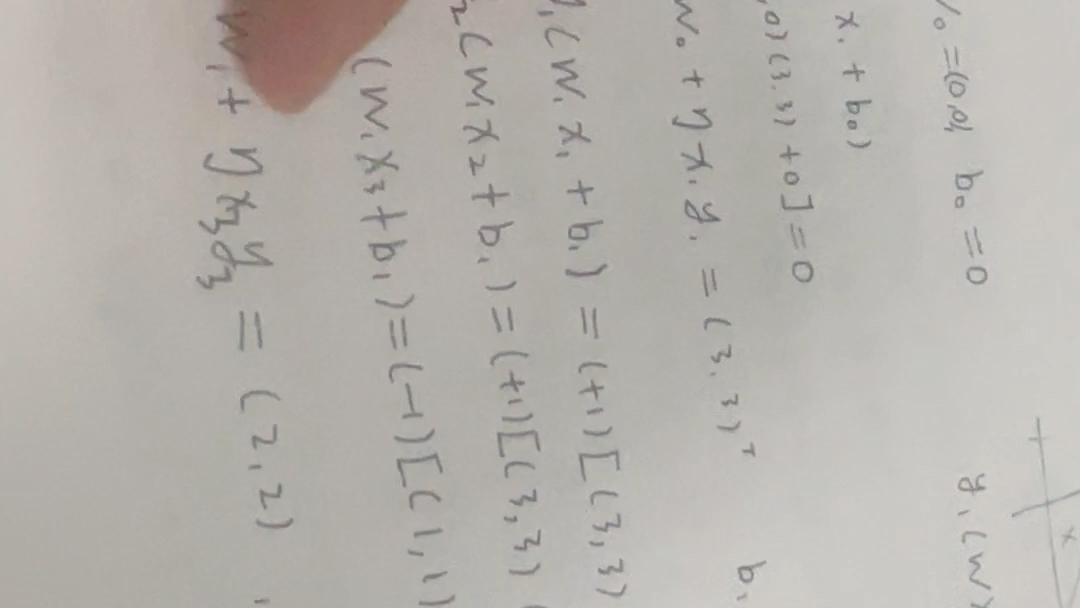 =(0,0) b₀ = 0
y₁(w
x₁ + b₀)
,0)(3,3)+0]=0
w₀ + ηx₁y₁ = (3,3)ᵀ b₁
(w₁x₁+b₁) = (+1)[(3,3)
₂(w₁x₂+b₁)=(+1)[(3,3)
(w₁x₃+b₁)=(-1)[(1,1)
w₁+ηx₃y₃ = (2,2)